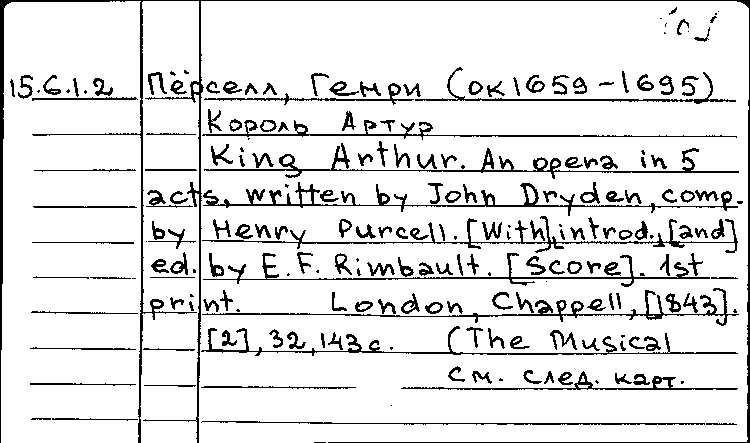 15.6.1.2 Пёрселл, Генри (ок1659-1695)
Король Артур
King Arthur. An opera in 5
acts, written by John Dryden, comp.
by Henry Purcell. [With] introd., [and]
ed. by E. F. Rimbault. [Score]. 1st
print. London, Chappell, [1843].
[2], 32, 143 с. (The Musical
См. след. карт.